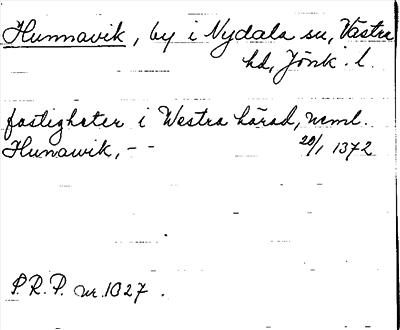 Hunnavik, by i Nydala sn, Västra
hd, Jönk. l.
fastigheter i Westra härad, nml.
Hunawik, - - 20/1 1372
P.R.P. nr. 1027.